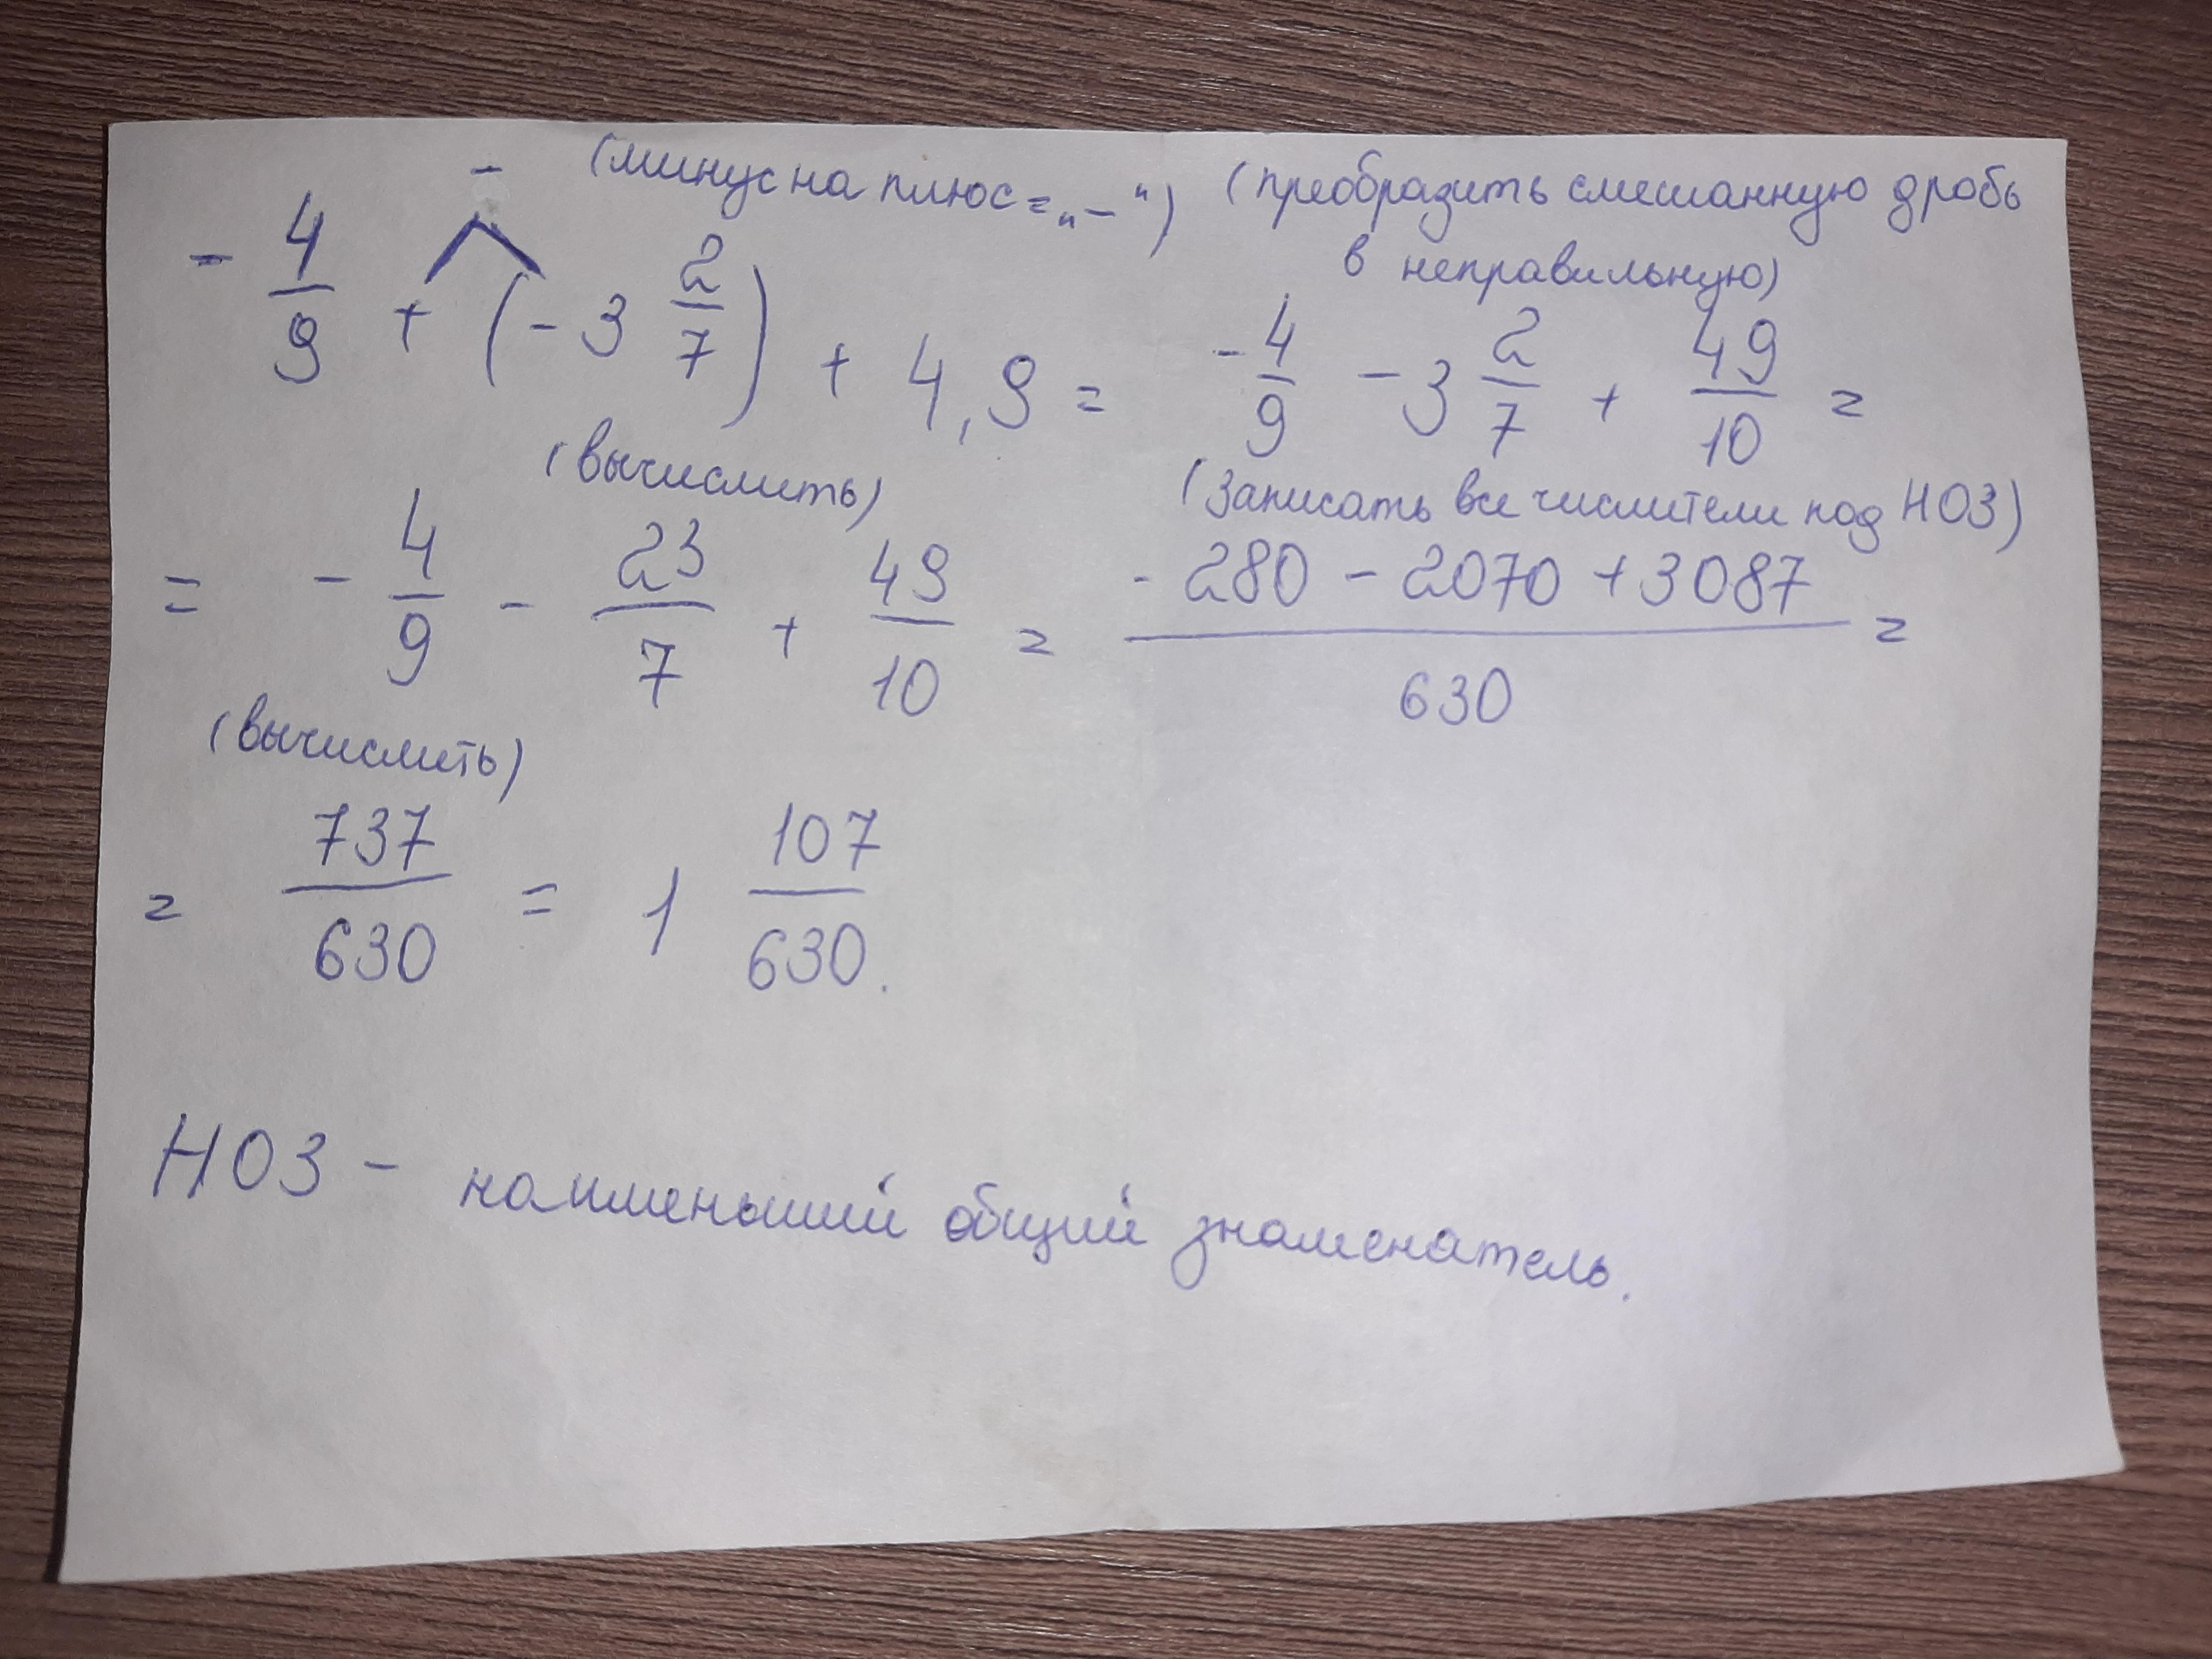 (минус на плюс = „–“) (преобразить смешанную дробь
в неправильную)
- 4/9 + (-3 2/7) + 4,9 = -4/9 - 3 2/7 + 49/10 =
(вычислить) (Записать все числители под НОЗ)
= - 4/9 - 23/7 + 49/10 = (- 280 - 2070 + 3087)/630 =
(вычислить)
= 737/630 = 1 107/630.
НОЗ - наименьший общий знаменатель.